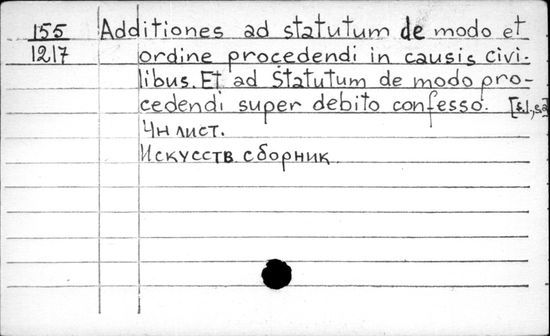 155 Additiones ad statutum de modo et
1217 ordine procedendi in causis civi-
libus. Et ad Statutum de modo pro-
cedendi super debito confesso. [s.l., s.a
4н лист.
Искусств сборник